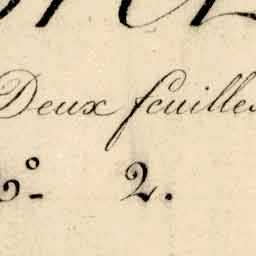 Deux feuilles
o- 2.